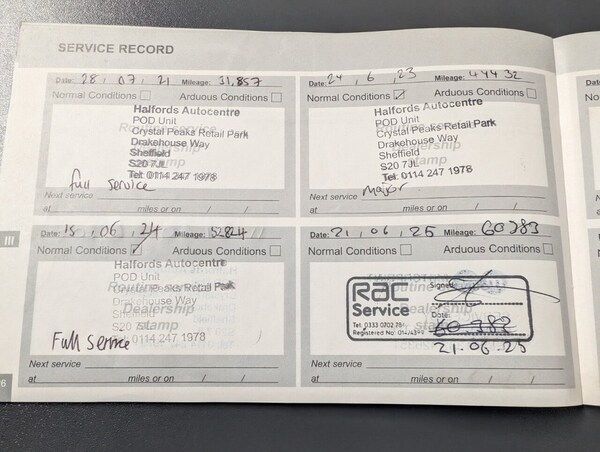 SERVICE RECORD
Date: 28 / 07 / 21 Mileage: 31,857
Normal Conditions Arduous Conditions
Halfords Autocentre
POD Unit
Crystal Peaks Retail Park
Drakehouse Way
Sheffield
S20 7JL
Tel: 0114 247 1978
full service
Next service
at miles or on / /
Date: 24 / 6 / 23 Mileage: 44432
Normal Conditions Arduous Conditions
Halfords Autocentre
POD Unit
Crystal Peaks Retail Park
Drakehouse Way
Sheffield
S20 7JL
Tel: 0114 247 1978
Major
Next service
at miles or on / /
Date: 15 / 06 / 24 Mileage: 52824
Normal Conditions Arduous Conditions
Halfords Autocentre
POD Unit
Crystal Peaks Retail Park
Drakehouse Way
Sheffield
S20
Tel: 0114 247 1978
Full Service
Next service
at miles or on / /
Date: 21 / 06 / 25 Mileage: 60383
Normal Conditions Arduous Conditions
RAC
Service
Signed
Date:
Tel: 0333 0702
Registered No:
21.06.25
Next service
at miles or on / /
III
6